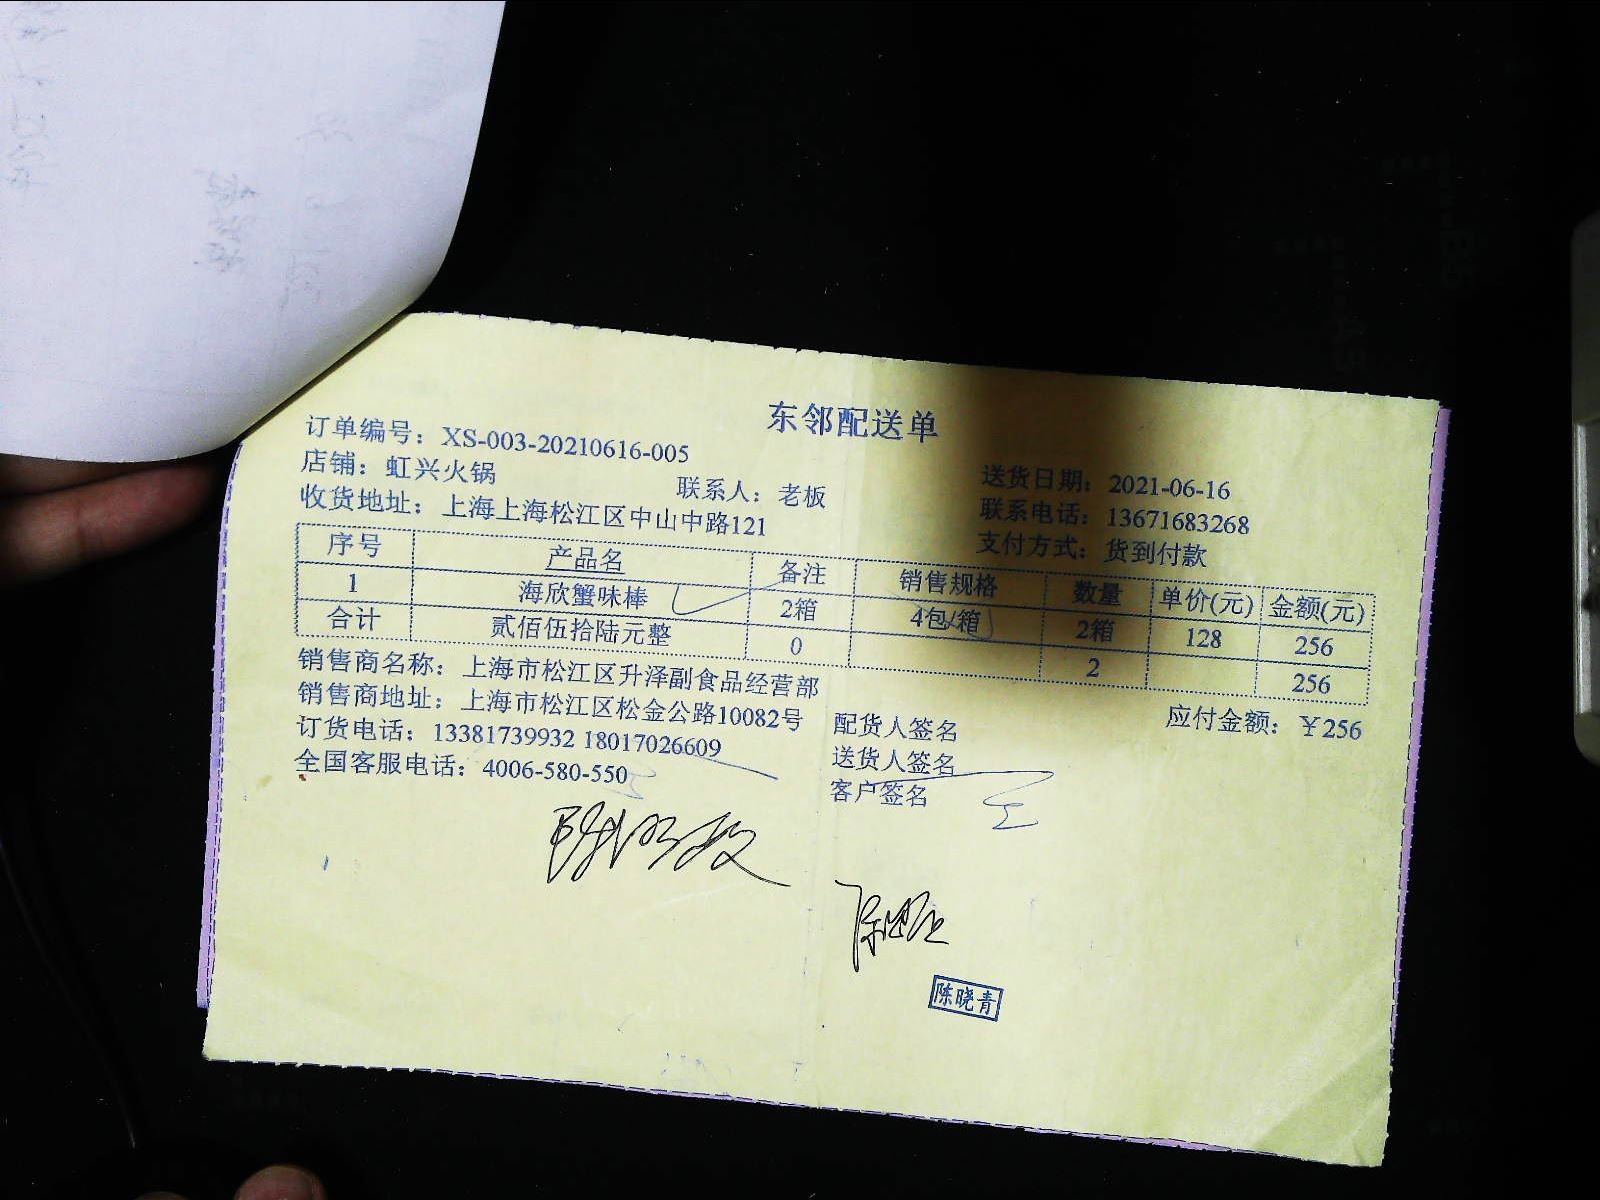 东邻配送单
订单编号：XS-003-20210616-005
店铺：虹兴火锅 联系人：老板 送货日期：2021-06-16
收货地址：上海上海松江区中山中路121 联系电话：13671683268
支付方式：货到付款
序号 产品名 备注 销售规格 数量 单价(元) 金额(元)
1 海欣蟹味棒 2箱 4包/箱 2箱 128 256
合计 贰佰伍拾陆元整 0 2 256
销售商名称：上海市松江区升泽副食品经营部
销售商地址：上海市松江区松金公路10082号 配货人签名 应付金额：￥256
订货电话：13381739932 18017026609 送货人签名
全国客服电话：4006-580-550 客户签名
陈晓青